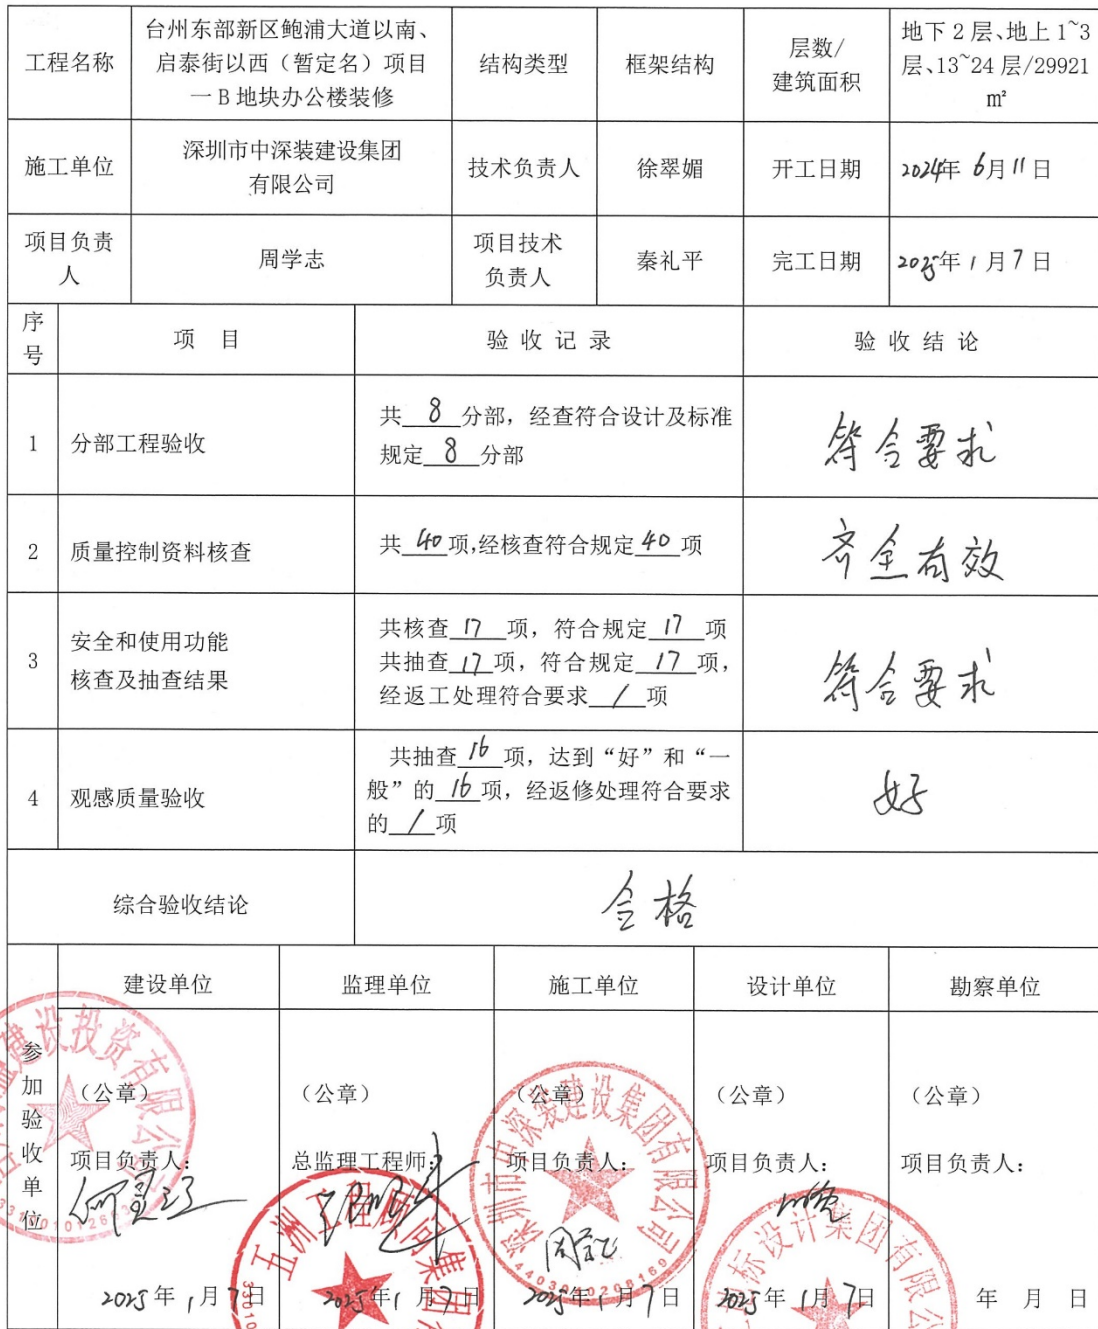 工程名称
台州东部新区鲍浦大道以南、
启泰街以西（暂定名）项目
一 B 地块办公楼装修
结构类型
框架结构
层数/
建筑面积
地下 2 层、地上 1~3
层、13~24 层/29921
m²
施工单位
深圳市中深装建设集团
有限公司
技术负责人
徐翠媚
开工日期
2024年 6月11日
项目负责
人
周学志
项目技术
负责人
秦礼平
完工日期
2025年 1月7日
序
号
项 目
验 收 记 录
验 收 结 论
1
分部工程验收
共 8 分部，经查符合设计及标准
规定 8 分部
符合要求
2
质量控制资料核查
共 40 项,经核查符合规定 40 项
齐全有效
3
安全和使用功能
核查及抽查结果
共核查 17 项，符合规定 17 项
共抽查 17 项，符合规定 17 项，
经返工处理符合要求 / 项
符合要求
4
观感质量验收
共抽查 16 项，达到“好”和“一
般”的 16 项，经返修处理符合要求
的 / 项
好
综合验收结论
合格
参加验收单位
建设单位
监理单位
施工单位
设计单位
勘察单位
（公章）
（公章）
（公章）
（公章）
（公章）
项目负责人：
总监理工程师：
项目负责人：
项目负责人：
项目负责人：
2025年 1月7日
2025年 1月7日
2025年 1月7日
2025年 1月7日
年 月 日
建设投资有限公司
五洲工程顾问集团有
深圳市中深装建设集团有限公司
4403010209169
标设计集团有限公